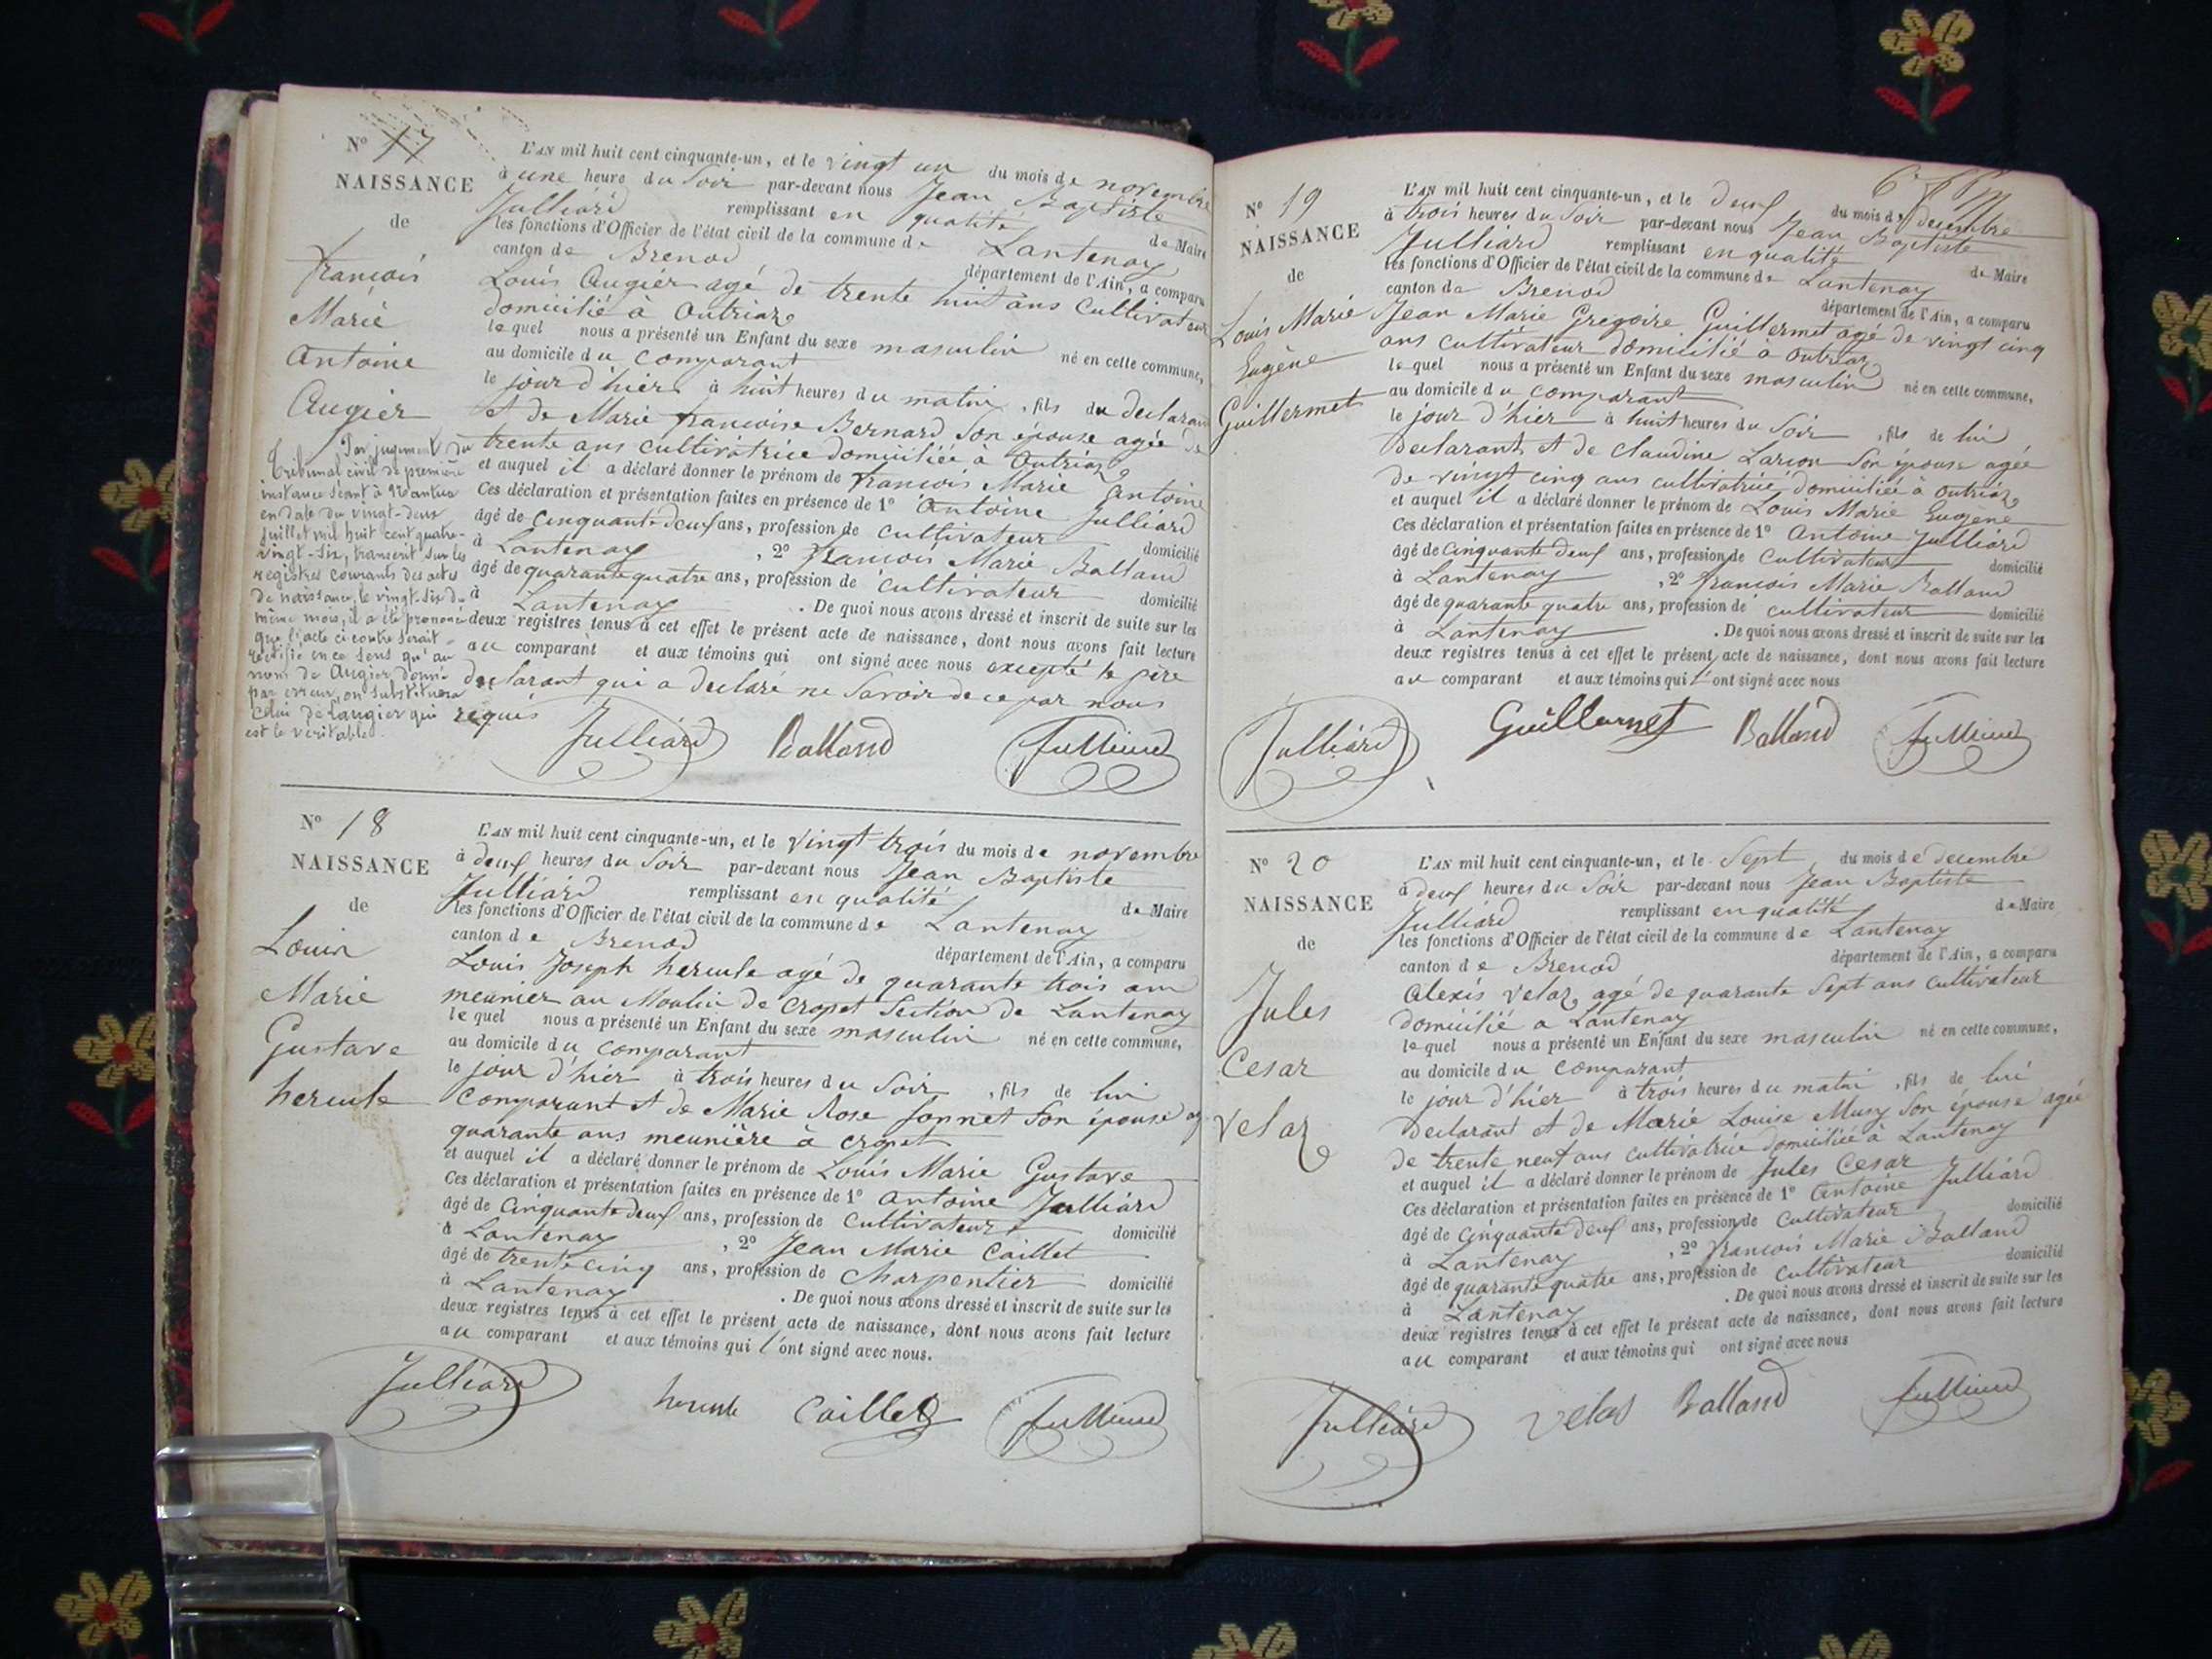 Nº 17
NAISSANCE
de
François
Marie
Antoine
Augier
Par jugement du
Tribunal civil de première
instance séant à Nantua
en date du vingt-deux
juillet mil huit cent quatre-
vingt-six, transcrit sur les
registres courants des actes
de naissance, le vingt-six du
même mois, il a été prononcé
que l'acte ci contre serait
rectifié en ce sens qu'au
nom de Augier donné
par erreur, on substituera
celui de Laugier qui
est le véritable.
L'AN mil huit cent cinquante-un, et le vingt un du mois de novembre
à une heure du Soir par-devant nous Jean Baptiste
Julliard remplissant en qualité de Maire
les fonctions d'Officier de l'état civil de la commune de Lantenay
canton de Brenod département de l'Ain, a comparu
Louis Augier agé de trente huit ans cultivateur
domicilié à Outriaz
lequel nous a présenté un Enfant du sexe masculin né en cette commune,
au domicile du comparant
le jour d'hier à huit heures du matin, fils du declarant
et de Marie françoise Bernard Son épouse agée de
trente ans cultivatrice domiciliée à Outriaz
et auquel il a déclaré donner le prénom de François Marie Antoine
Ces déclaration et présentation faites en présence de 1º Antoine Julliard
âgé de Cinquante deux ans, profession de cultivateur domicilié
à Lantenay, 2º François Marie Balland
âgé de quarante quatre ans, profession de cultivateur domicilié
à Lantenay. De quoi nous avons dressé et inscrit de suite sur les
deux registres tenus à cet effet le présent acte de naissance, dont nous avons fait lecture
au comparant et aux témoins qui ont signé avec nous excepté le père
declarant qui a declaré ne Savoir de ce par nous
requis
Julliard Balland Julliard
Nº 18
NAISSANCE
de
Louis
Marie
Gustave
hercule
L'AN mil huit cent cinquante-un, et le vingt trois du mois de novembre
à deux heures du Soir par-devant nous Jean Baptiste
Julliard remplissant en qualité de Maire
les fonctions d'Officier de l'état civil de la commune de Lantenay
canton de Brenod département de l'Ain, a comparu
Louis Joseph hercule agé de quarante trois ans
meunier au Moulin de Cropet Section de Lantenay
lequel nous a présenté un Enfant du sexe masculin né en cette commune,
au domicile du comparant
le jour d'hier à trois heures du Soir, fils de lui
comparant et de Marie Rose Sonnet Son épouse ag
quarante ans meunière à cropet
et auquel il a déclaré donner le prénom de Louis Marie Gustave
Ces déclaration et présentation faites en présence de 1º Antoine Julliard
âgé de Cinquante deux ans, profession de Cultivateur domicilié
à Lantenay, 2º Jean Marie Caillet
âgé de trente cinq ans, profession de Charpentier domicilié
à Lantenay. De quoi nous avons dressé et inscrit de suite sur les
deux registres tenus à cet effet le présent acte de naissance, dont nous avons fait lecture
au comparant et aux témoins qui l'ont signé avec nous.
Julliard hercule Caillet Julliard
Nº 19
NAISSANCE
de
Louis Marie
Eugène
Guillermet
L'AN mil huit cent cinquante-un, et le deux du mois de decembre
à trois heures du Soir par-devant nous Jean Baptiste
Julliard remplissant en qualité de Maire
les fonctions d'Officier de l'état civil de la commune de Lantenay
canton de Brenod département de l'Ain, a comparu
Jean Marie Gregoire Guillermet agé de vingt cinq
ans cultivateur domicilié à Outriaz
lequel nous a présenté un Enfant du sexe masculin né en cette commune,
au domicile du comparant
le jour d'hier à huit heures du Soir, fils de lui
declarant et de claudine Larcon Son épouse agée
de vingt cinq ans cultivatrice domiciliée à Outriaz
et auquel il a déclaré donner le prénom de Louis Marie Eugène
Ces déclaration et présentation faites en présence de 1º Antoine Julliard
âgé de Cinquante deux ans, profession de Cultivateur domicilié
à Lantenay, 2º François Marie Balland
âgé de quarante quatre ans, profession de cultivateur domicilié
à Lantenay. De quoi nous avons dressé et inscrit de suite sur les
deux registres tenus à cet effet le présent acte de naissance, dont nous avons fait lecture
au comparant et aux témoins qui l'ont signé avec nous
Julliard Guillermet Balland Julliard
Nº 20
NAISSANCE
de
Jules
Cesar
Velaz
L'AN mil huit cent cinquante-un, et le Sept du mois de decembre
à deux heures du Soir par-devant nous Jean Baptiste
Julliard remplissant en qualité de Maire
les fonctions d'Officier de l'état civil de la commune de Lantenay
canton de Brenod département de l'Ain, a comparu
Alexis Velaz agé de quarante Sept ans cultivateur
domicilié a Lantenay
lequel nous a présenté un Enfant du sexe masculin né en cette commune,
au domicile du comparant
le jour d'hier à trois heures du matin, fils de lui
declarant et de Marie Louise Musy Son épouse agée
de trente neuf ans cultivatrice domiciliée à Lantenay
et auquel il a déclaré donner le prénom de Jules Cesar
Ces déclaration et présentation faites en présence de 1º Antoine Julliard
âgé de Cinquante deux ans, profession de Cultivateur domicilié
à Lantenay, 2º François Marie Balland
âgé de quarante quatre ans, profession de Cultivateur domicilié
à Lantenay. De quoi nous avons dressé et inscrit de suite sur les
deux registres tenus à cet effet le présent acte de naissance, dont nous avons fait lecture
au comparant et aux témoins qui ont signé avec nous
Julliard velas Balland Julliard